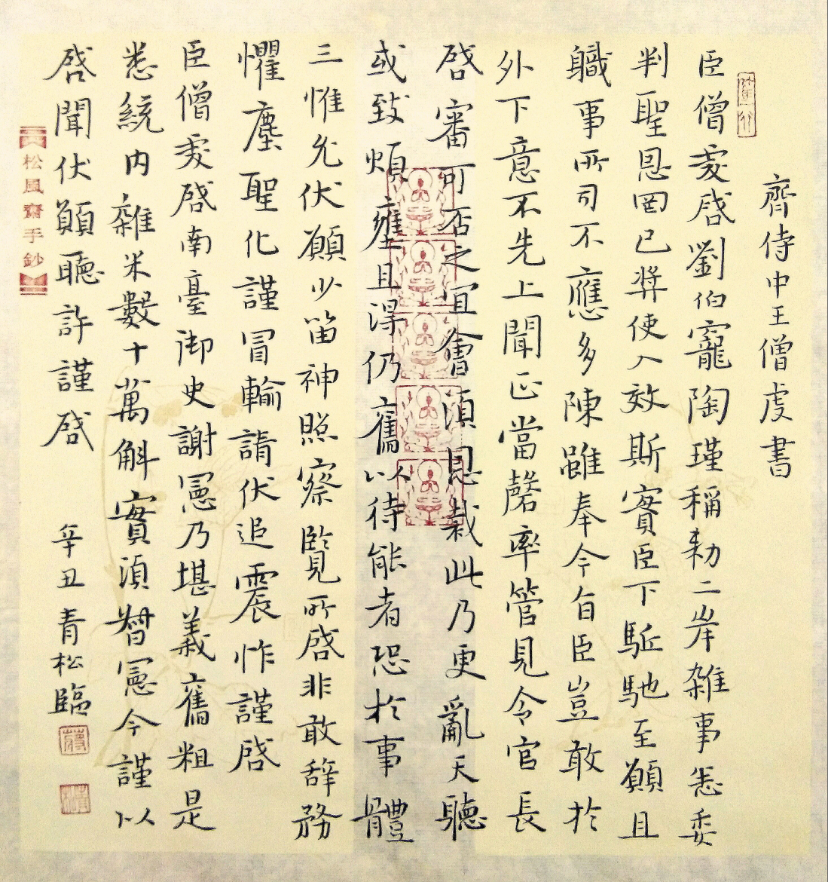 齊侍中王僧虔書
臣僧虔啓劉伯寵陶瑾稱勅二岸雑事悉委
判聖恩罔已奬使入效斯實臣下駈馳至願且
軄事所司不應多陳雖奉今旨臣豈敢於
外下意不先上聞正當罄率管見令官長
啓審可否之宜會湏恩裁此乃更亂天聽
或致煩壅且淂仍舊以待能者恐於事體
三惟允伏願少留神照察覽所啓非敢辞務
懼塵聖化謹冒輸請伏追震怍謹啓
臣僧虔啓南臺御史謝憲乃堪義舊粗是
悉統内雜米數十萬斛實湏督憲今謹以
啓聞伏願聽許謹啓
辛丑青松臨
松風齋手鈔